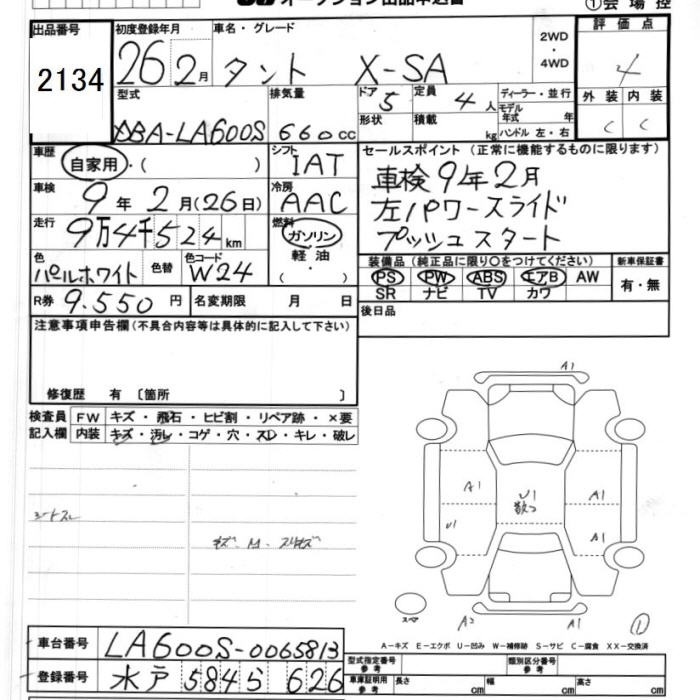 オークション出品申込書
①会場控
出品番号
2134
初度登録年月
26 2月
車名・グレード
タント X-SA
2WD・4WD
評価点
4
型式
DBA-LA600S
排気量
660cc
ドア 5
定員 4人
ディーラー・並行
モデル年式 年
形状
積載 kg
ハンドル 左・右
外装 内装
C C
車歴
自家用・( )
シフト
IAT
車検
9年2月(26日)
冷房
AAC
走行
9万4千524km
燃料
ガソリン・軽油・( )
色
パールホワイト
色替
色コード
W24
R券 9.550円
名変期限 月 日
セールスポイント(正常に機能するものに限ります)
車検9年2月
左パワースライド
プッシュスタート
装備品(純正品に限り○をつけてください)
新車保証書
PS PW ABS エアB AW
SR ナビ TV カワ
有・無
後日品
注意事項申告欄(不具合内容等は具体的に記入して下さい)
修復歴 有 〔箇所 〕
検査員記入欄
FW キズ・飛石・ヒビ割・リペア跡・×要
内装 キズ・汚レ・コゲ・穴・スレ・キレ・破レ
A1
A1
U1
U1
A1
A1
A2
A1
スペア
①
A-キズ E-エクボ U-凹み W-補修跡 S-サビ C-腐食 XX-交換済
車台番号
LA600S-0065813
登録番号
水戸 5845 626
型式指定番号 参考
類別区分番号 参考
車庫証明用 参考
長さ cm
幅 cm
高さ cm